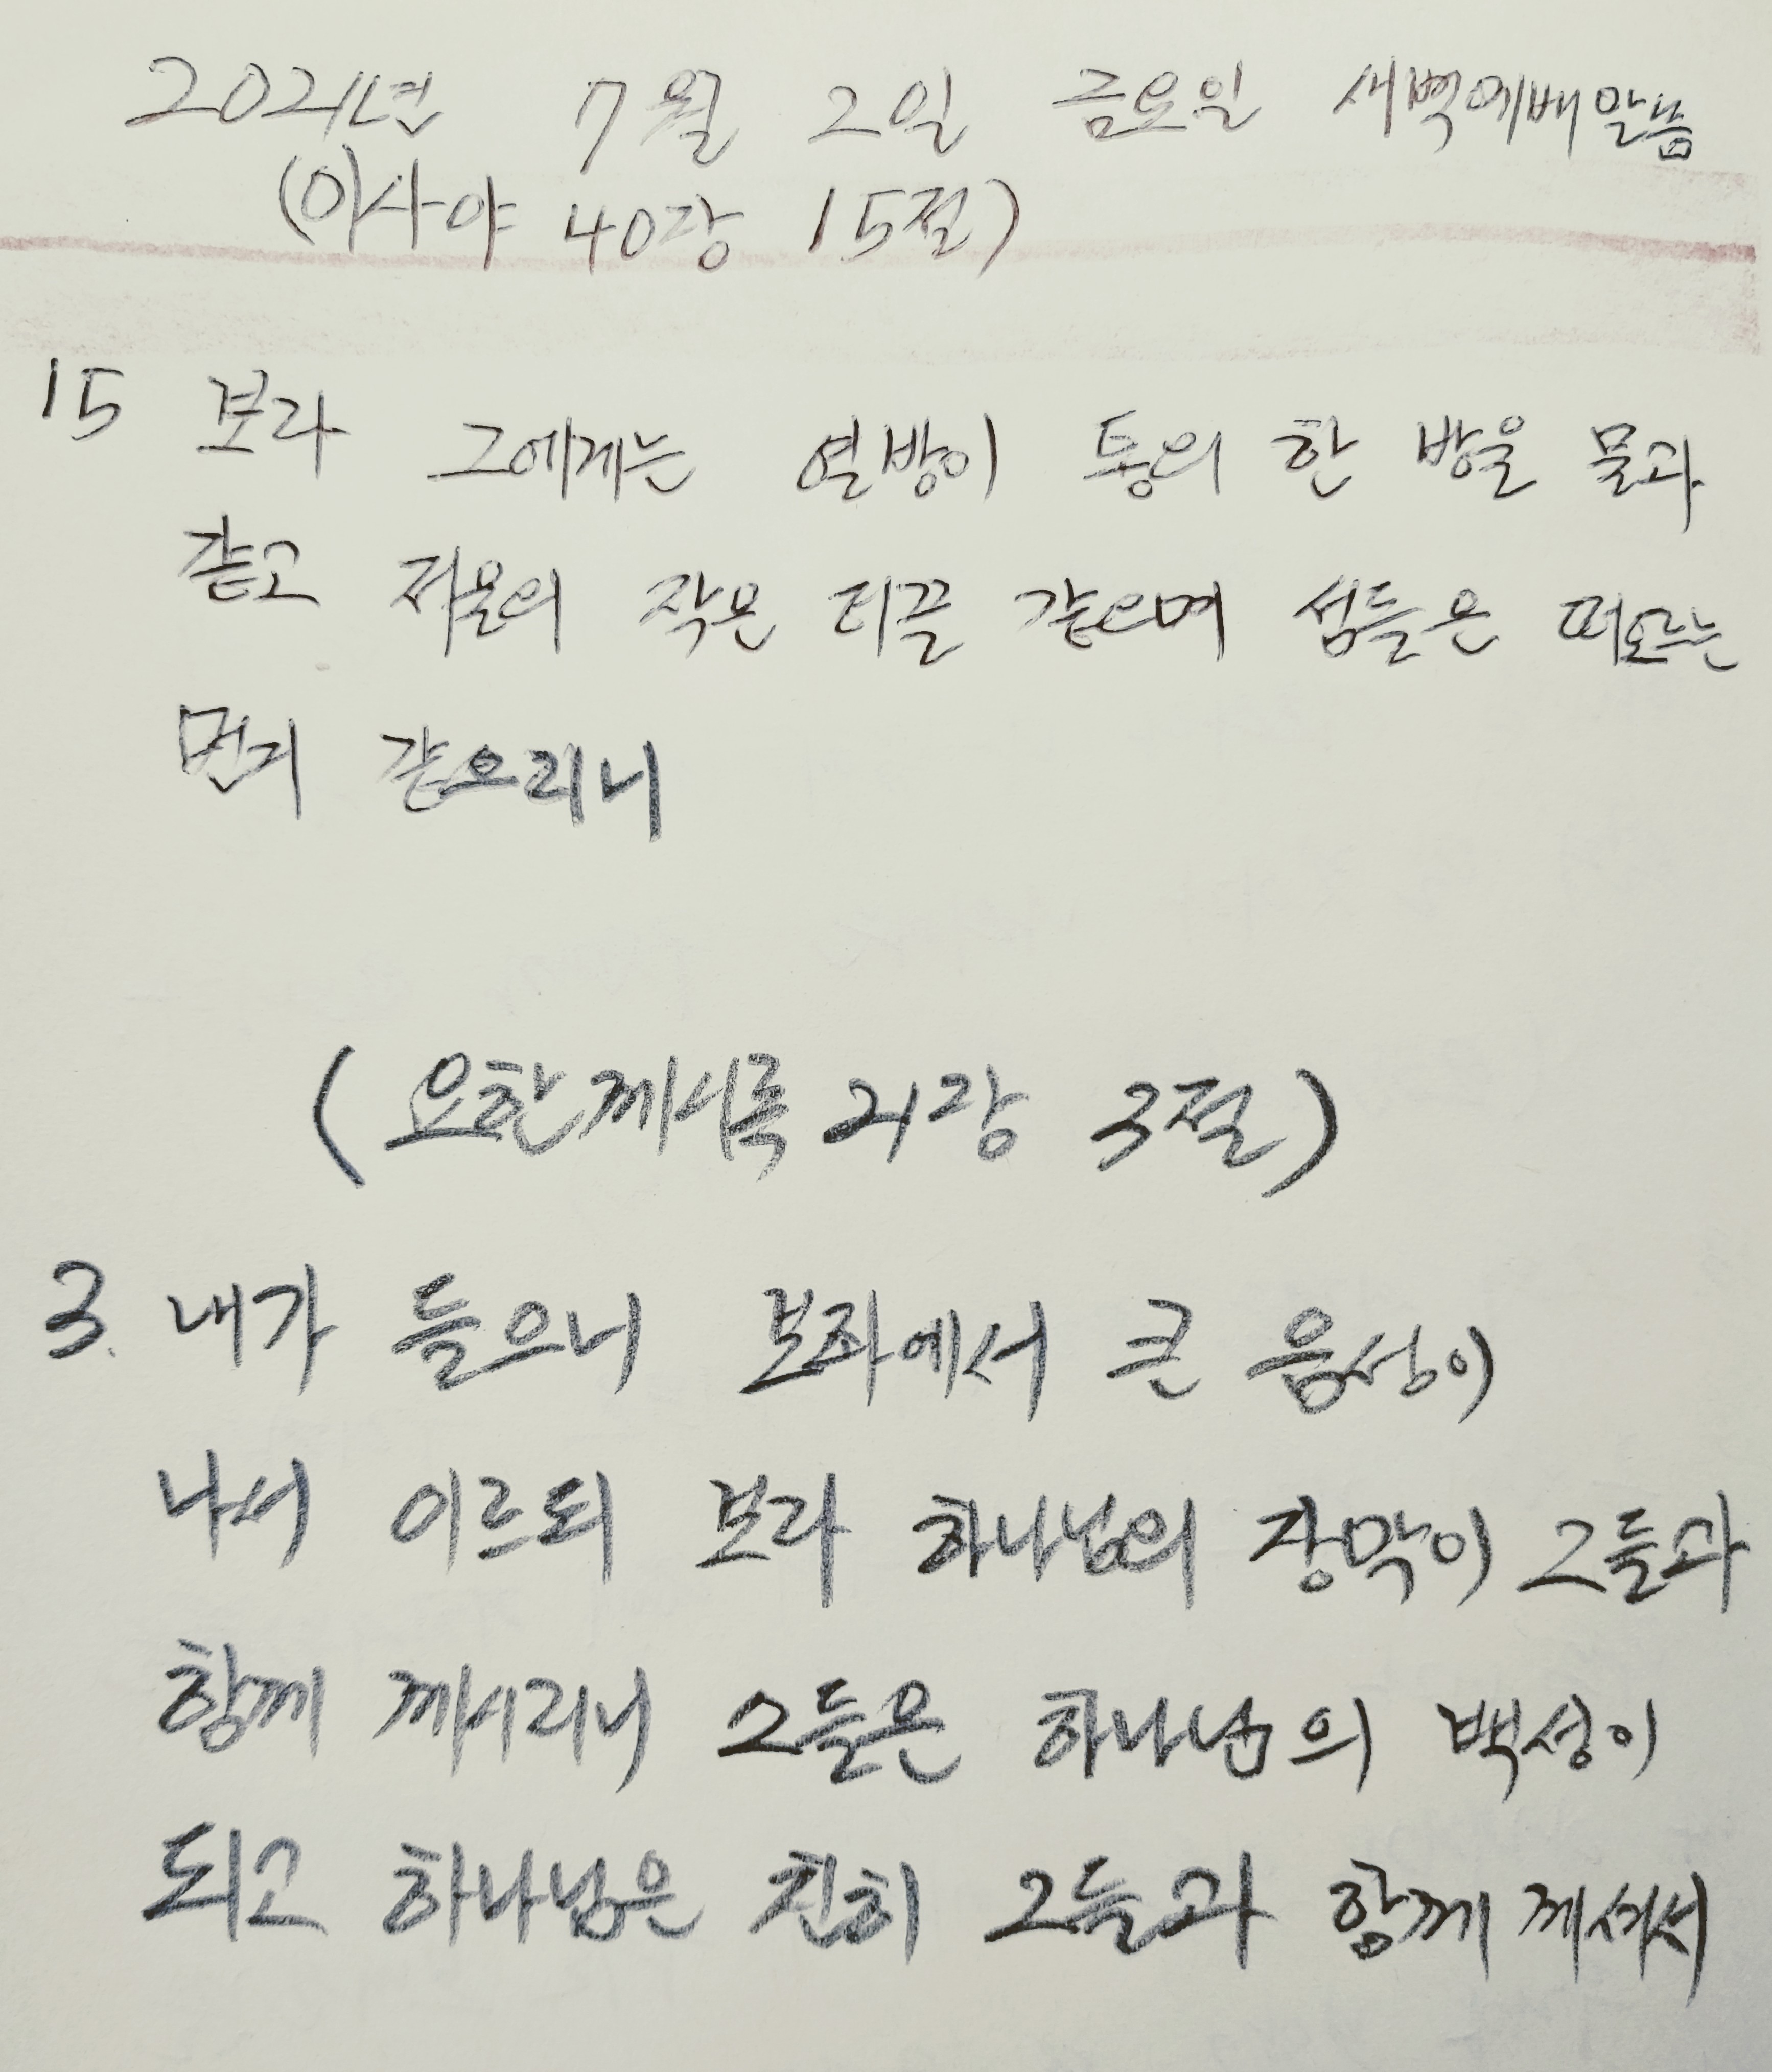 2021년 7월 2일 금요일 새벽예배말씀
(이사야 40장 15절)
15 보라 그에게는 열방이 통의 한 방울 물과
같고 저울의 작은 티끌 같으며 섬들은 떠오르는
먼지 같으리니
(요한께시록 21장 3절)
3. 내가 들으니 보좌에서 큰 음성이
나서 이르되 보라 하나님의 장막이 그들과
함께 께시리니 그들은 하나님의 백성이
되고 하나님은 친히 그들과 함께 께셔서